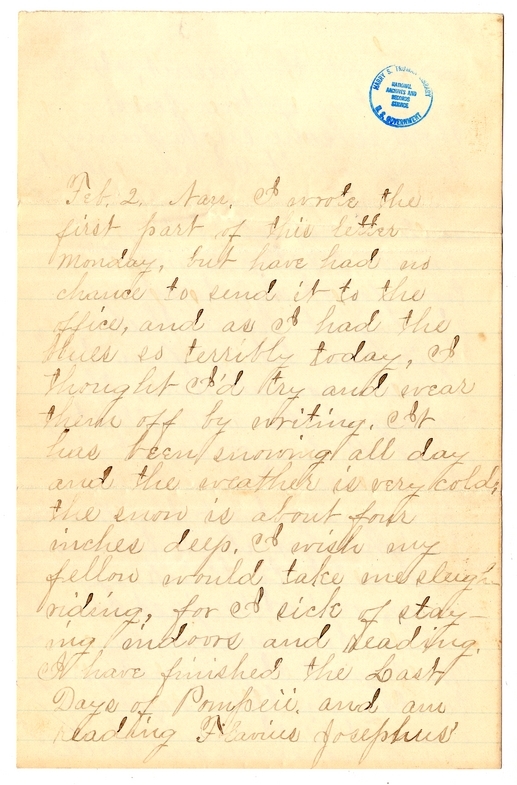 HARRY S. TRUMAN LIBRARY
NATIONAL
ARCHIVES AND
RECORDS
SERVICE
U. S. GOVERNMENT
Feb. 2. Nan, I wrote the
first part of this letter
Monday, but have had no
chance to send it to the
office, and as I had the
blues so terribly today, I
thought I'd try and wear
them off by writing. It
has been snowing all day
and the weather is very cold;
the snow is about four
inches deep. I wish my
fellow would take me sleigh-
riding, for I sick of stay-
ing indoors and reading.
I have finished the Last
Days of Pompeii. and am
reading Flavius Josephus'